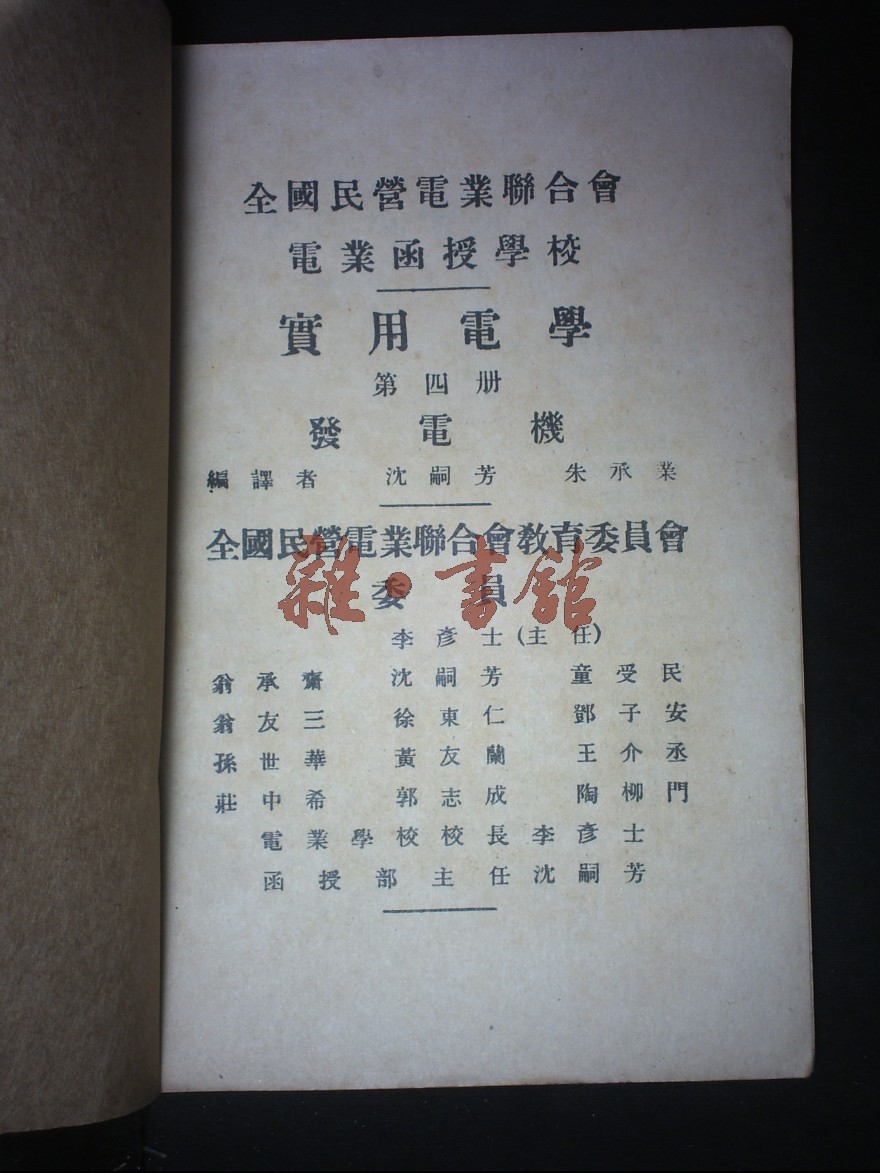 全國民營電業聯合會
電業函授學校
實用電學
第四册
發電機
編譯者 沈嗣芳 朱承業
全國民營電業聯合會教育委員會
委員
雜·書館
李彥士(主任)
翁承齋 沈嗣芳 童受民
翁友三 徐東仁 鄧子安
孫世華 黃友蘭 王介丞
莊中希 郭志成 陶柳門
電業學校校長李彥士
函授部主任沈嗣芳